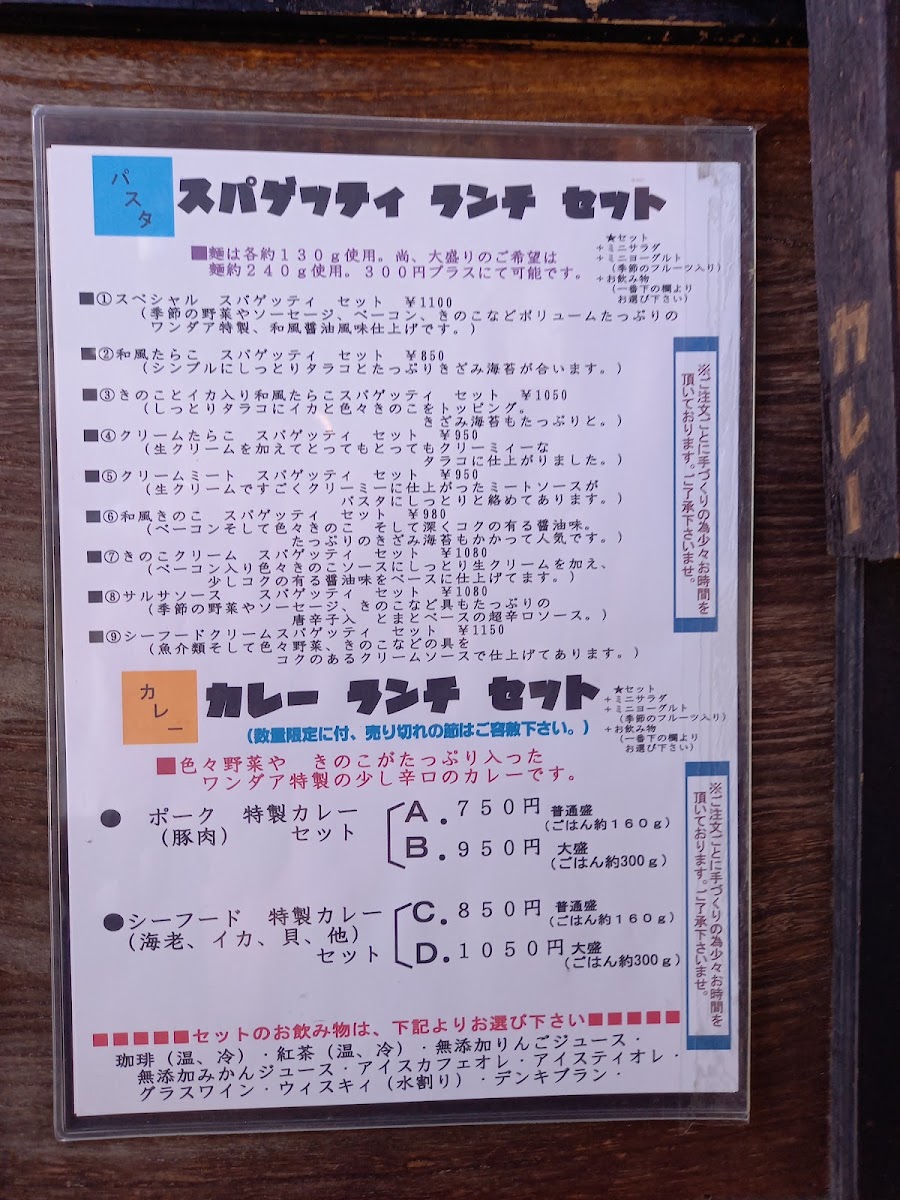 パスタ
スパゲッティ ランチ セット
■麺は各約１３０ｇ使用。尚、大盛りのご希望は
麺約２４０ｇ使用。３００円プラスにて可能です。
★セット
＋ミニサラダ
＋ミニヨーグルト
（季節のフルーツ入り）
＋お飲み物
（一番下の欄より
お選び下さい）
■①スペシャル スパゲッティ セット ￥1100
（季節の野菜やソーセージ、ベーコン、きのこなどボリュームたっぷりの
ワンダア特製、和風醤油風味仕上げです。）
■②和風たらこ スパゲッティ セット ￥850
（シンプルにしっとりタラコとたっぷりきざみ海苔が合います。）
■③きのことイカ入り和風たらこスパゲッティ セット ￥1050
（しっとりタラコにイカと色々きのこをトッピング。
きざみ海苔もたっぷりと。）
■④クリームたらこ スパゲッティ セット ￥950
（生クリームを加えてとってもとってもクリーミィーな
タラコに仕上がりました。）
■⑤クリームミート スパゲッティ セット ￥950
（生クリームですごくクリーミーに仕上がったミートソースが
パスタにしっとりと絡めてあります。）
■⑥和風きのこ スパゲッティ セット ￥980
（ベーコンそして色々きのこ そして深くコクの有る醤油味。
たっぷりのきざみ海苔もかかって人気です。）
■⑦きのこクリーム スパゲッティ セット ￥1080
（ベーコン入り色々きのこソースにしっとり生クリームを加え、
少しコクの有る醤油味をベースに仕上げてます。）
■⑧サルサソース スパゲッティ セット ￥1080
（季節の野菜やソーセージ、きのこなど具もたっぷりの
唐辛子入 とまとベースの超辛口ソース。）
■⑨シーフードクリームスパゲッティ セット ￥1150
（魚介類そして色々野菜、きのこなどの具を
コクのあるクリームソースで仕上げてあります。）
※ご注文ごとに手づくりの為少々お時間を
頂いております。ご了承下さいませ。
カレー
カレー ランチ セット
（数量限定に付、売り切れの節はご容赦下さい。）
★セット
＋ミニサラダ
＋ミニヨーグルト
（季節のフルーツ入り）
＋お飲み物
（一番下の欄より
お選び下さい）
■色々野菜や きのこがたっぷり入った
ワンダア特製の少し辛口のカレーです。
● ポーク 特製カレー
（豚肉） セット
A．７５０円 普通盛
（ごはん約１６０ｇ）
B．９５０円 大盛
（ごはん約300ｇ）
●シーフード 特製カレー
（海老、イカ、貝、他）
セット
C．８５０円 普通盛
（ごはん約１６０ｇ）
D．１０５０円 大盛
（ごはん約300ｇ）
※ご注文ごとに手づくりの為少々お時間を
頂いております。ご了承下さいませ。
■■■■■セットのお飲み物は、下記よりお選び下さい■■■■■
珈琲（温、冷）・紅茶（温、冷）・無添加りんごジュース・
無添加みかんジュース・アイスカフェオレ・アイスティオレ・
グラスワイン・ウィスキィ（水割り）・デンキブラン・
カレー